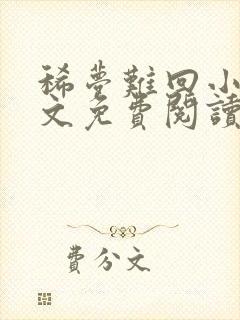 稀夢難回小
文免費閱讀
費分文